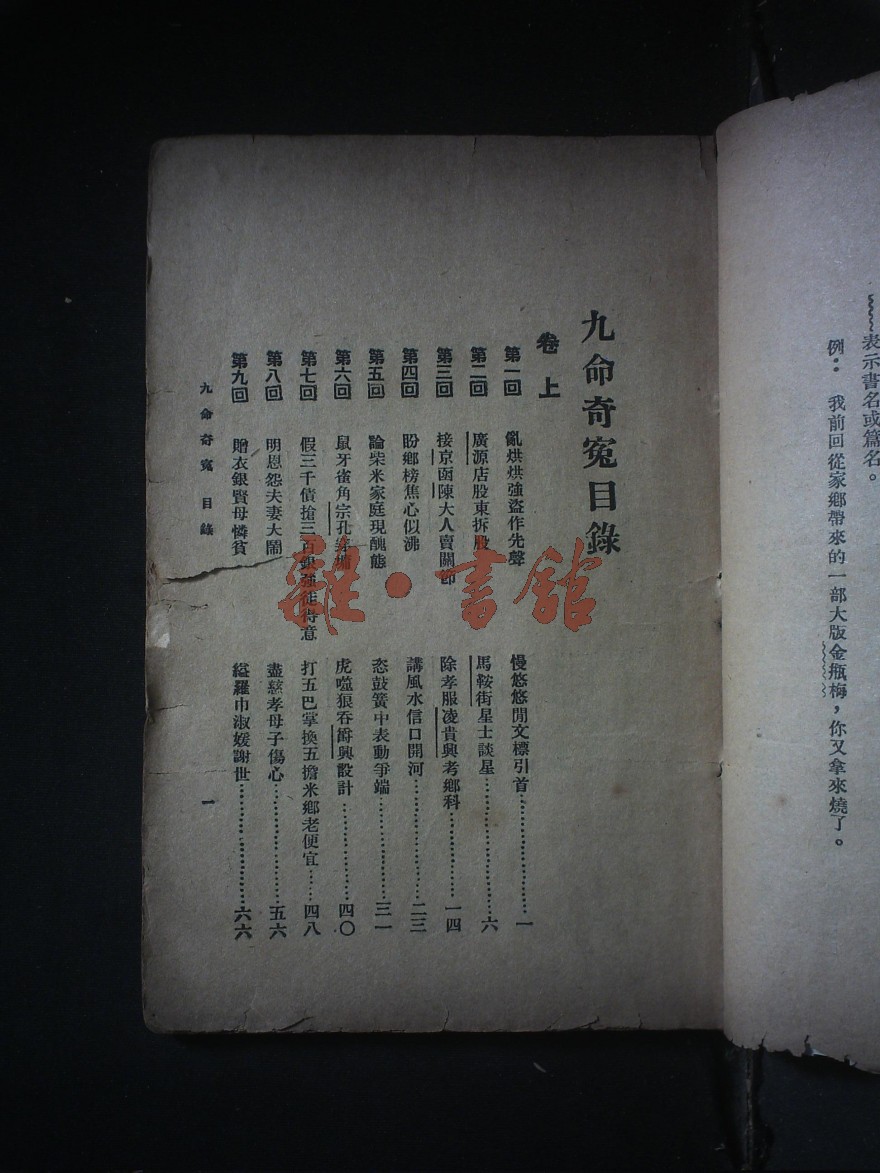 表示書名或篇名。
例：我前回從家鄉帶來的一部大版金瓶梅，你又拿來燒了。
九命奇冤目錄
卷上
第一回 亂烘烘強盜作先聲 慢悠悠閒文標引首……一
第二回 廣源店股東拆股 馬鞍街星士談星……六
第三回 接京函陳大人賣關節 除孝服凌貴興考鄉科……一四
第四回 盼鄉榜焦心似沸 講風水信口開河……二三
第五回 論柴米家庭現醜態 恣鼓簧中表動爭端……三一
第六回 鼠牙雀角宗孔穿墉 虎噬狼吞爵興設計……四〇
第七回 假三千債搶三百銀強徒得意 打五巴掌換五擔米鄉老便宜……四八
第八回 明恩怨夫妻大鬧 盡慈孝母子傷心……五六
第九回 贈衣銀賢母憐貧 縊羅巾淑媛謝世……六六
九命奇冤 目錄
一
雜·書館